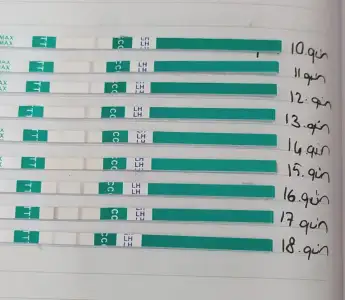 MAX MAX TT CC LH LH 10.gün
MAX TT CC LH LH 11.gün
MAX TT CC LH LH 12.gün
TT CC LH LH 13.gün
TT CC LH LH 14.gün
TT CC LH LH 15.gün
TT CC LH LH 16.gün
TT CC LH LH 17.gün
TT CC LH LH 18.gün